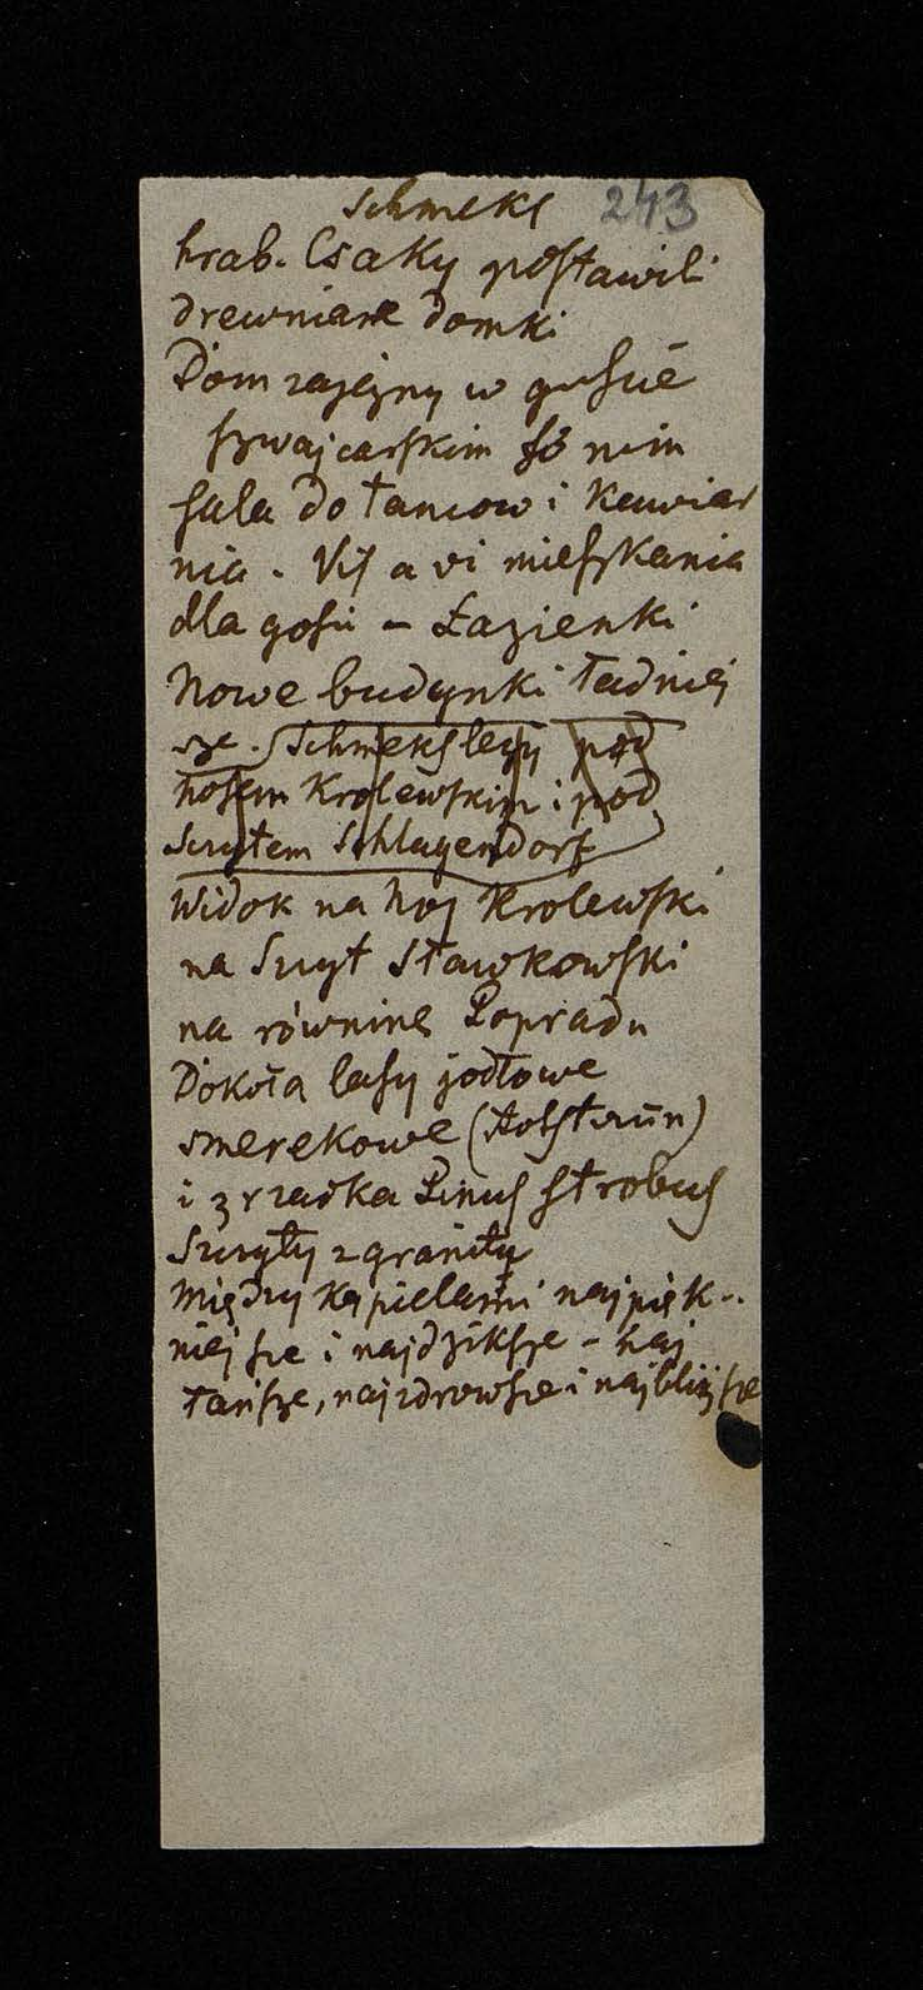 Schmeks 243
hrab. Csaky postawili
drewniane domki
Dom zajezny w guscie
szwajcarskim w nim
sala do tancow i kawiar
nia. Vis a vi mieszkania
dla gosci – Łazienki
Nowe budynki ładniej
sze. Schmeks leży pod
nosem Krolewskim i pod
Szczytem Schlagendorf
Widok na Nos Krolewski
na Szczyt Sławkowski
na równinę Popradu
Dokoła lasy jodłowe
smerekowe
i z rzadka Pinus strobus
Szczyty z granitu
Między kąpielami najpięk-
niejsze i najdziksze – naj
tańsze, najzdrowsze i najbliższe